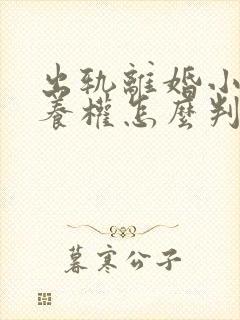 出軌離婚小
養權怎麼判
暮寒公子